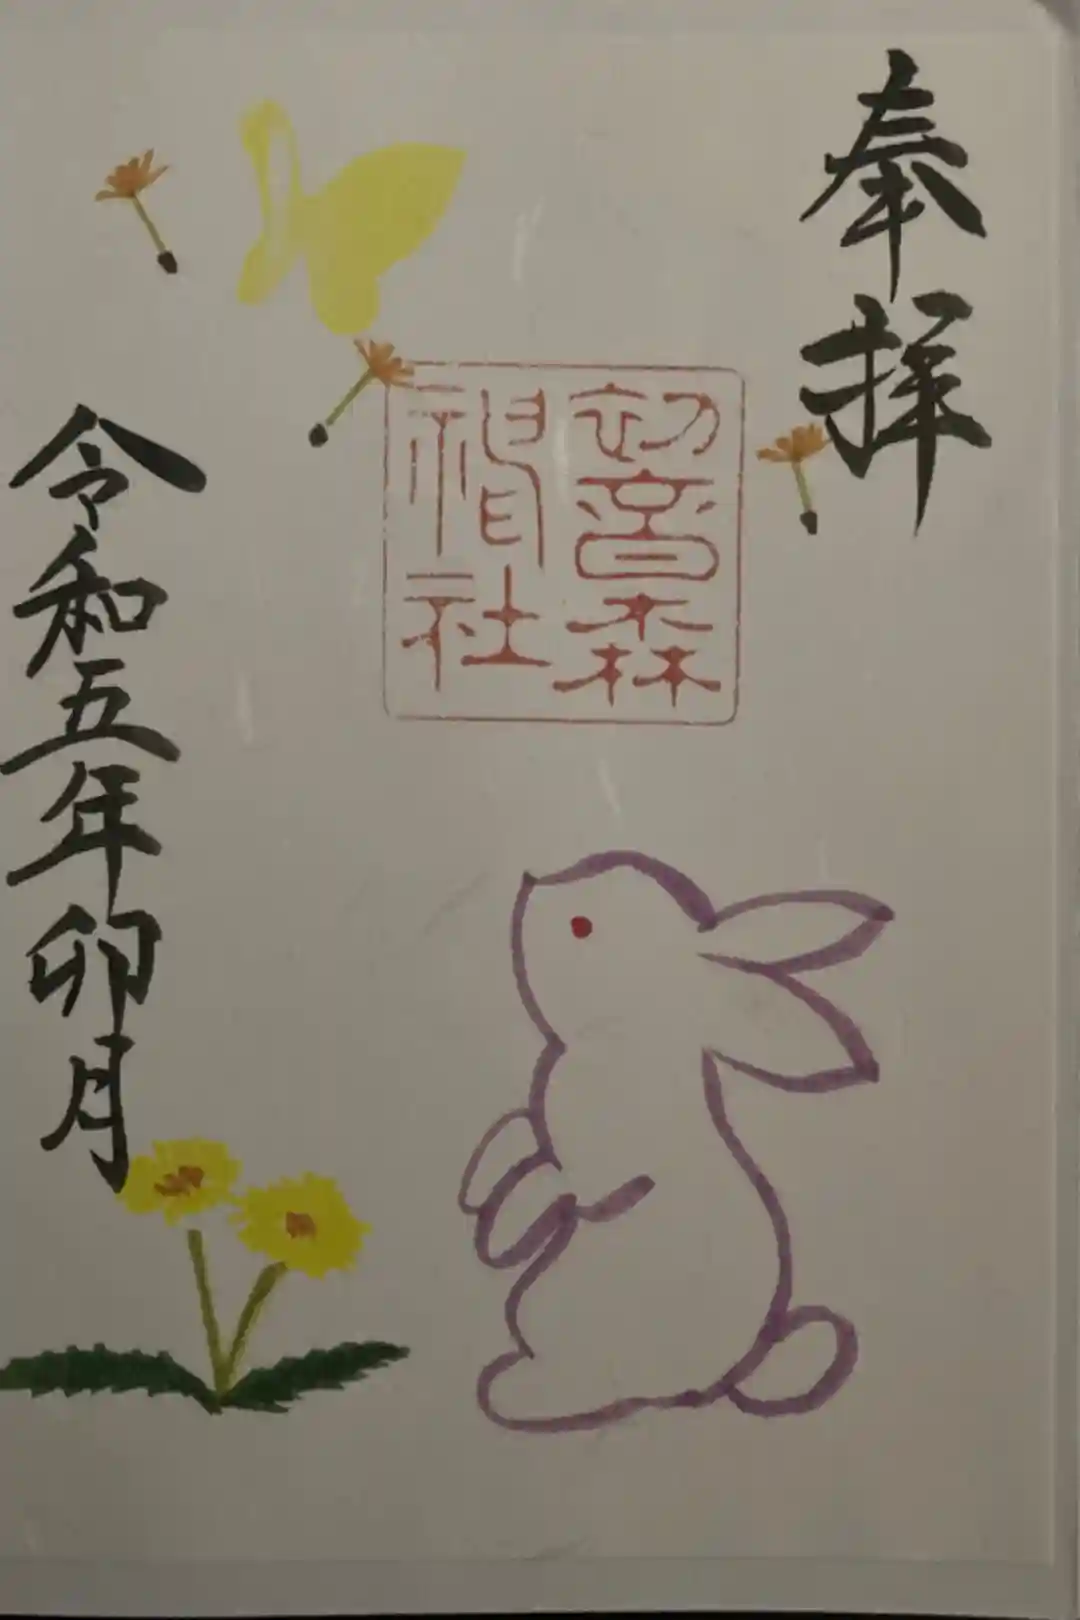 奉拝
初音森
神社
令和五年卯月